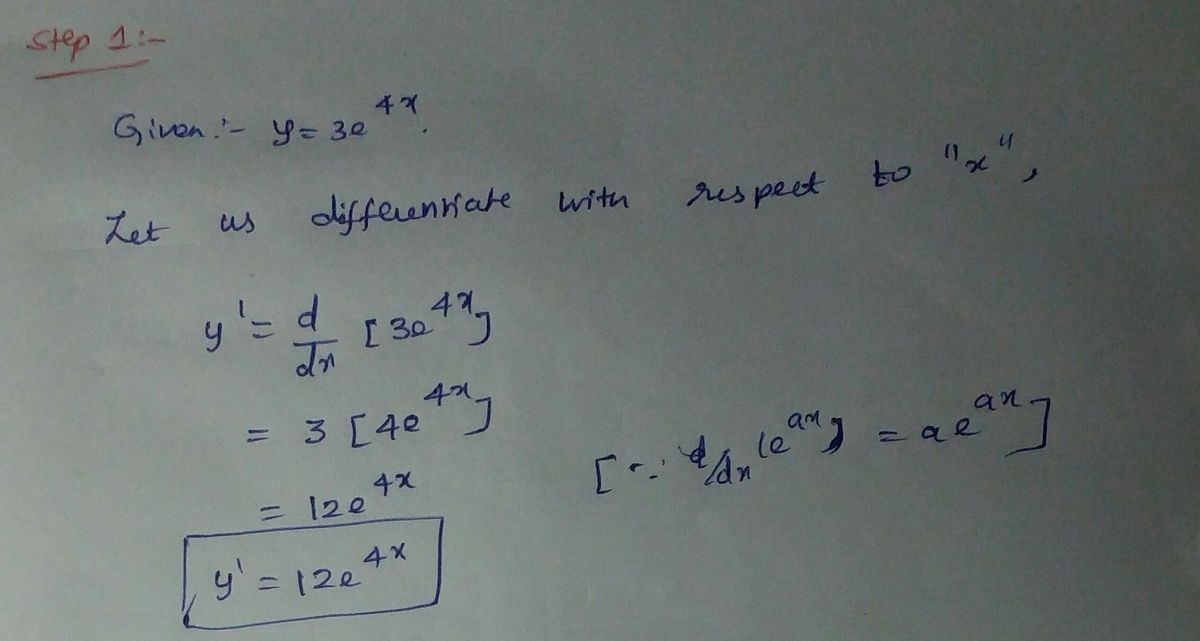 Step 1:-
Given:- y = 3e^{4x}.
Let us differentiate with respect to "x",
y' = d/dx [3e^{4x}]
= 3 [4e^{4x}]
[∵ d/dx (e^{ax}) = ae^{ax}]
= 12e^{4x}
y' = 12e^{4x}